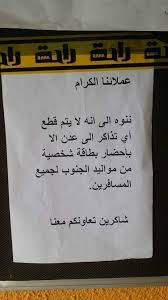 راحة راحة راحة
عملائنا الكرام
ننوه الى انه لا يتم قطع
أي تذاكر الى عدن الا
باحضار بطاقة شخصية
من مواليد الجنوب لجميع
المسافرين.
شاكرين تعاونكم معنا